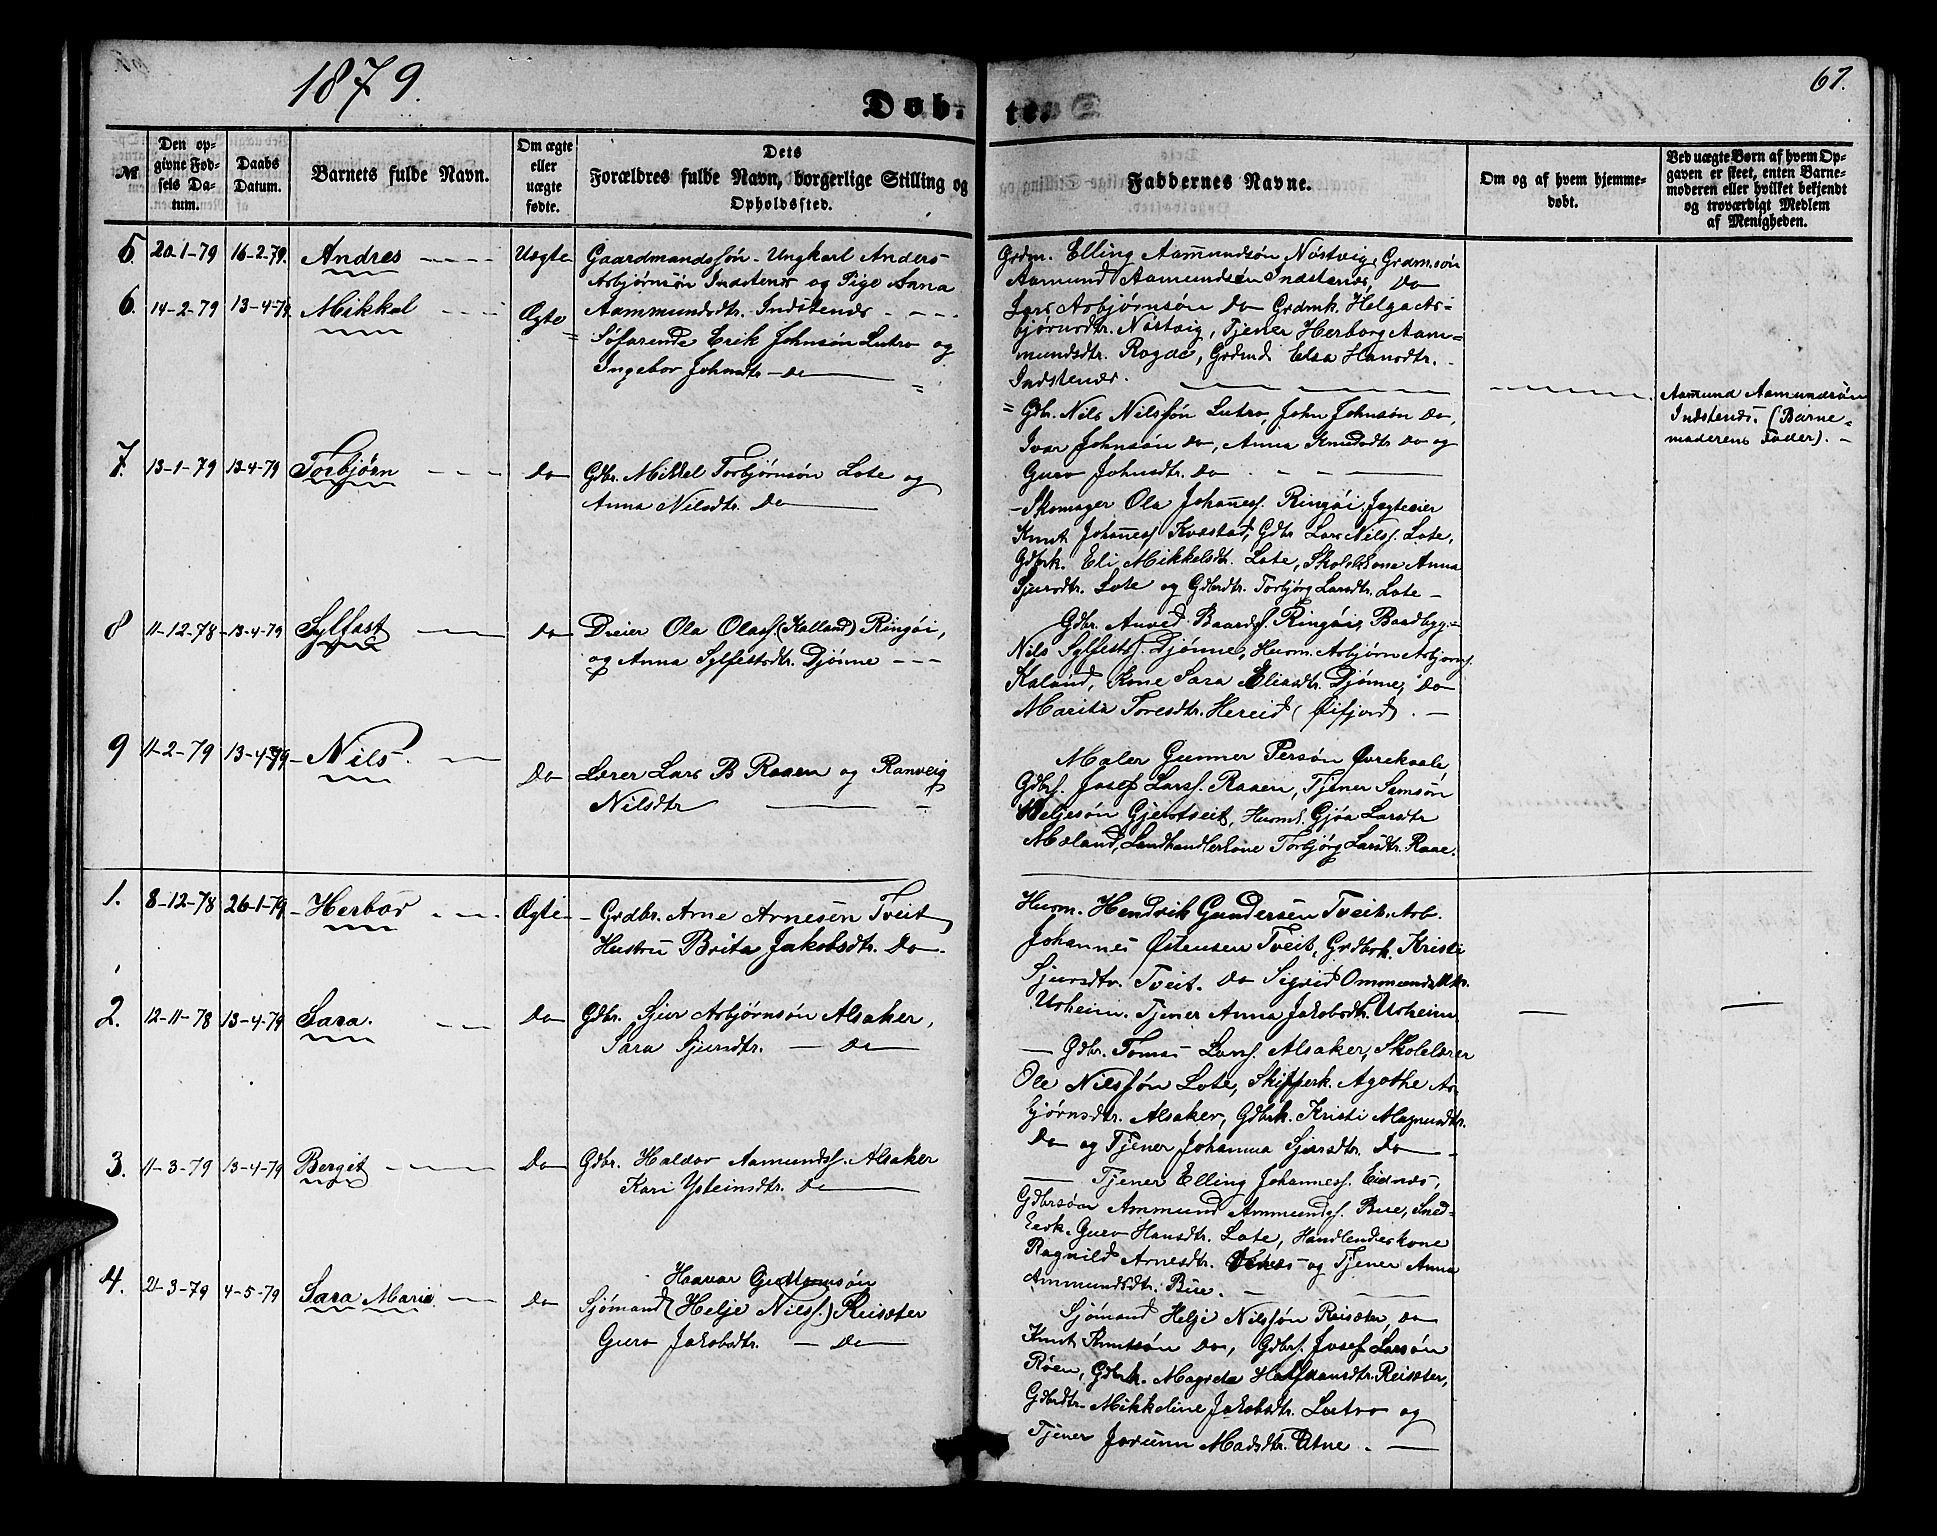 1879.
67.
Døb-
te.
№
Den op-
givne Fød-
sels Da-
tum.
Daabs
Datum.
Barnets fulde Navn.
Om ægte
eller
uægte
fødte.
Dets
Forældres fulde Navn, borgerlige Stilling og
Opholdssted.
Faddernes Navne.
Om og af hvem hjemme-
døbt.
Ved uægte Børn af hvem Op-
gaven er skeet, enten Barne-
moderen eller hvilket bekjendt
og troværdigt Medlem
af Menigheden.
5. 20-1-79 16-2-79. Andres Uægte
Gaardmandssøn - Ungkarl Anders
Asbjørnsøn Indstenes og Pige Anna
Aammundsdtr. Indstenes
Grdm. Elling Aamundsøn Nöstvig, Grdm.søn
Aamund Aamundsøn Indstenes, Do
Lars Asbjørnsön Do Grdmk. Helga As-
bjørnsdtr. Nöstvig, Tjener Herborg Aam-
mundsdtr. Rogde, Elsa Hansdtr.
Indstenes.
Aamund Aamundsøn
Indstenes (Barne-
moderens Fader). -
6. 14-2-79 13-4-79 Mikkal Ægte
Søfarende Erik Johnsøn Lutro og
Ingebor Johnsdtr - Do
Gdbr. Nils Nilssøn Lutro, John Johnsøn Do,
Ivar Johnsøn Do, Anna Knudsdtr Do og
Guro Johnsdtr. Do
7. 13-1-79 13-4-79 Torbjørn Do
Gdbr. Mikkel Torbjørnsøn Lote og
Anna Nilsdtr. Do
- Skomager Ola Johaness. Ringøi, Jagteeier
Knut Johaness Kvæstad, Gdbr Lars Nilss. Lote,
Gdbrk. Eli Mikkelsdtr. Lote, Skolelkone Anna
Sjursdtr. Lote og Gdbrdtr. Torbjørg Larsdtr. Lote -
8 11-12-78 13-4-79 Sylfast Do
Dreier Ola Olass (Kalland) Ringøi,
og Anna Sylfestsdtr. Djønne
Gdbr. Anved Baards. Ringøi, Baadbyg-
Nils Sylfests. Djønne, Husm. Asbjørn Asbjørns.
Kaland, Kone Sara Eliasdtr. Djønne, Do
Marita Toresdtr. Hereid (Øifjord).
9 11-2-79 13-4-79 Nils. Do
Lærer Lars B Raaen og Ranveig
Nilsdtr
Maler Gunner Persøn Øvrekvale,
Gdbrs. Josef Larss. Raaen, Tjener Samsøn
Helgesøn Gjertveit, Husms. Gjøa Larsdtr
Mæland, Landhandlerkone Torbjørg Larsdtr. Raae.
1. 8-12-78 26-1-79 - Herbor Ægte
- Grdbr. Arne Arnesen Tveit
Hustru Brita Jakobsdtr. Do
Husm. Hendrik Gundersen Tveit. Arb.
Johannes Østensen Tveit, Grdbrk. Kristi
Sjursdtr. Tveit. Do Sigrid Ommundsdtr.
Urheim. Tjener Anna Jakobsdtr. Urheim
2. 12-11-78 13-4-79 Sara. Do
Gdbr. Sjur Asbjørnsøn Alsaker,
Sara Sjursdtr. - Do
- Gdbr. Tomas Larss. Alsaker, Skolelærer
Ole Nilssøn Lote, Skipperk. Agathe As-
bjørnsdtr. Alsaker, Gdbrk. Kristi Magnusdtr.
Do og Tjener Johanna Sjursdtr. Do
3. 11-3-79 13-4-79 Bergit Do
Gdbr. Haldor Aamunds. Alsaker
Kari Ysteinsdtr. Do
Tjener Elling Johanness. Eidnes,
Gdbrsøn Ammund Ammunds. Bue, Sned-
Guro Hansdtr. Lote, Handlenderkone
Ragnild Arnesdtr. og Tjener Anna
Ammundsdtr. Bue.
4. 21-3-79 4-5-79 Sara Marie Do
Haavar Guttormsøn
Sjømand (Helje Nilss.) Reisæter
Guro Jakobsdtr. - Do
Sjömand Helje Nilssøn Reisæter, Do
Knut Knutsøn Do, Gdbrs. Josef Larsøn
Röen, Gdbrk. Magrida Halfvarsdtr. Reisæter,
Gdbrdtr. Mikkeline Jakobsdtr. Lutro og
Tjener Jorunn Madsdtr. Utne.